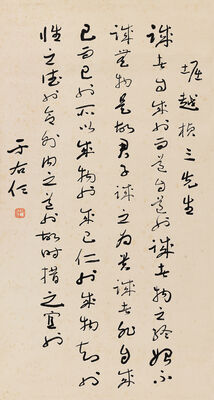 堀越楨三先生
誠者自成也而道自道也誠者物之終始不
誠無物是故君子誠之為貴誠者非自成
己而已也所以成物也成己仁也成物知也
性之德也合外內之道也故時措之宜也
于右任